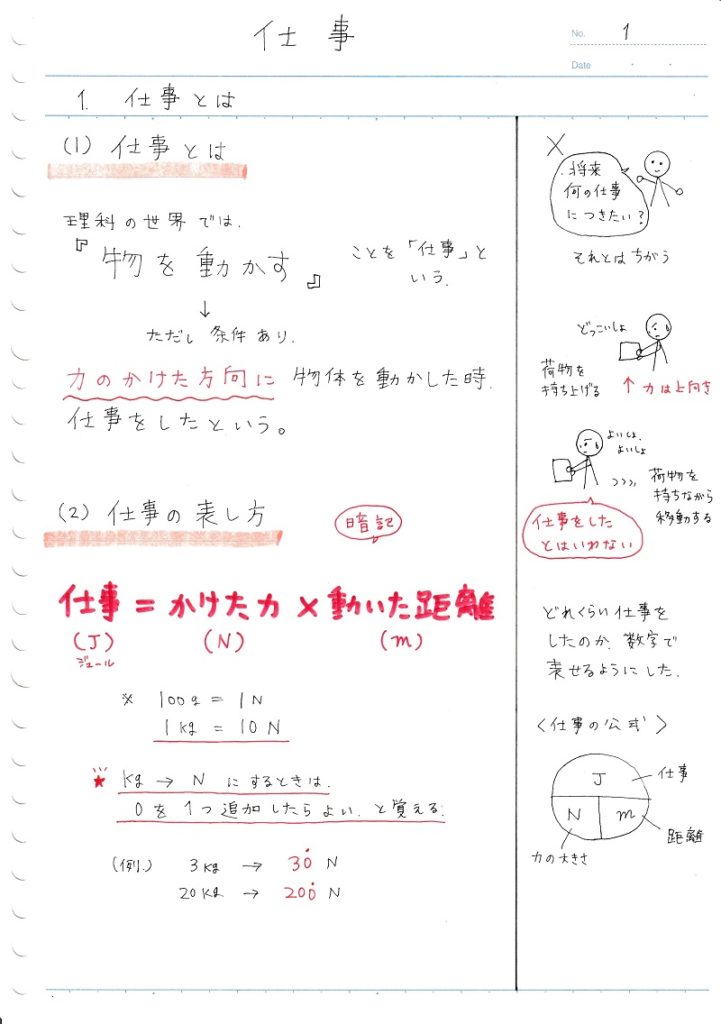 仕事
No. 1
Date
1. 仕事とは
(1) 仕事とは
理科の世界では.
『物を動かす』 ことを「仕事」と
いう.
↓
ただし 条件あり.
力のかけた方向に 物体を動かした時.
仕事をしたという。
(2) 仕事の表し方
暗記
仕事 = かけた力 × 動いた距離
(J) (N) (m)
ジュール
※ 100g = 1N
1kg = 10N
★ kg → N にするときは.
0を1つ追加したらよい. と覚える.
(例.) 3kg → 30 N
20kg → 200 N
×
将来
何の仕事
につきたい?
それとは ちがう
どっこいしょ
荷物を
持ち上げる ↑ 力は上向き
よいしょ.
よいしょ
荷物を
持ちながら
移動する
仕事をした
とはいわない
どれくらい仕事を
したのか. 数字で
表せるようにした.
〈仕事の公式〉
J 仕事
N m
距離
力の大きさ